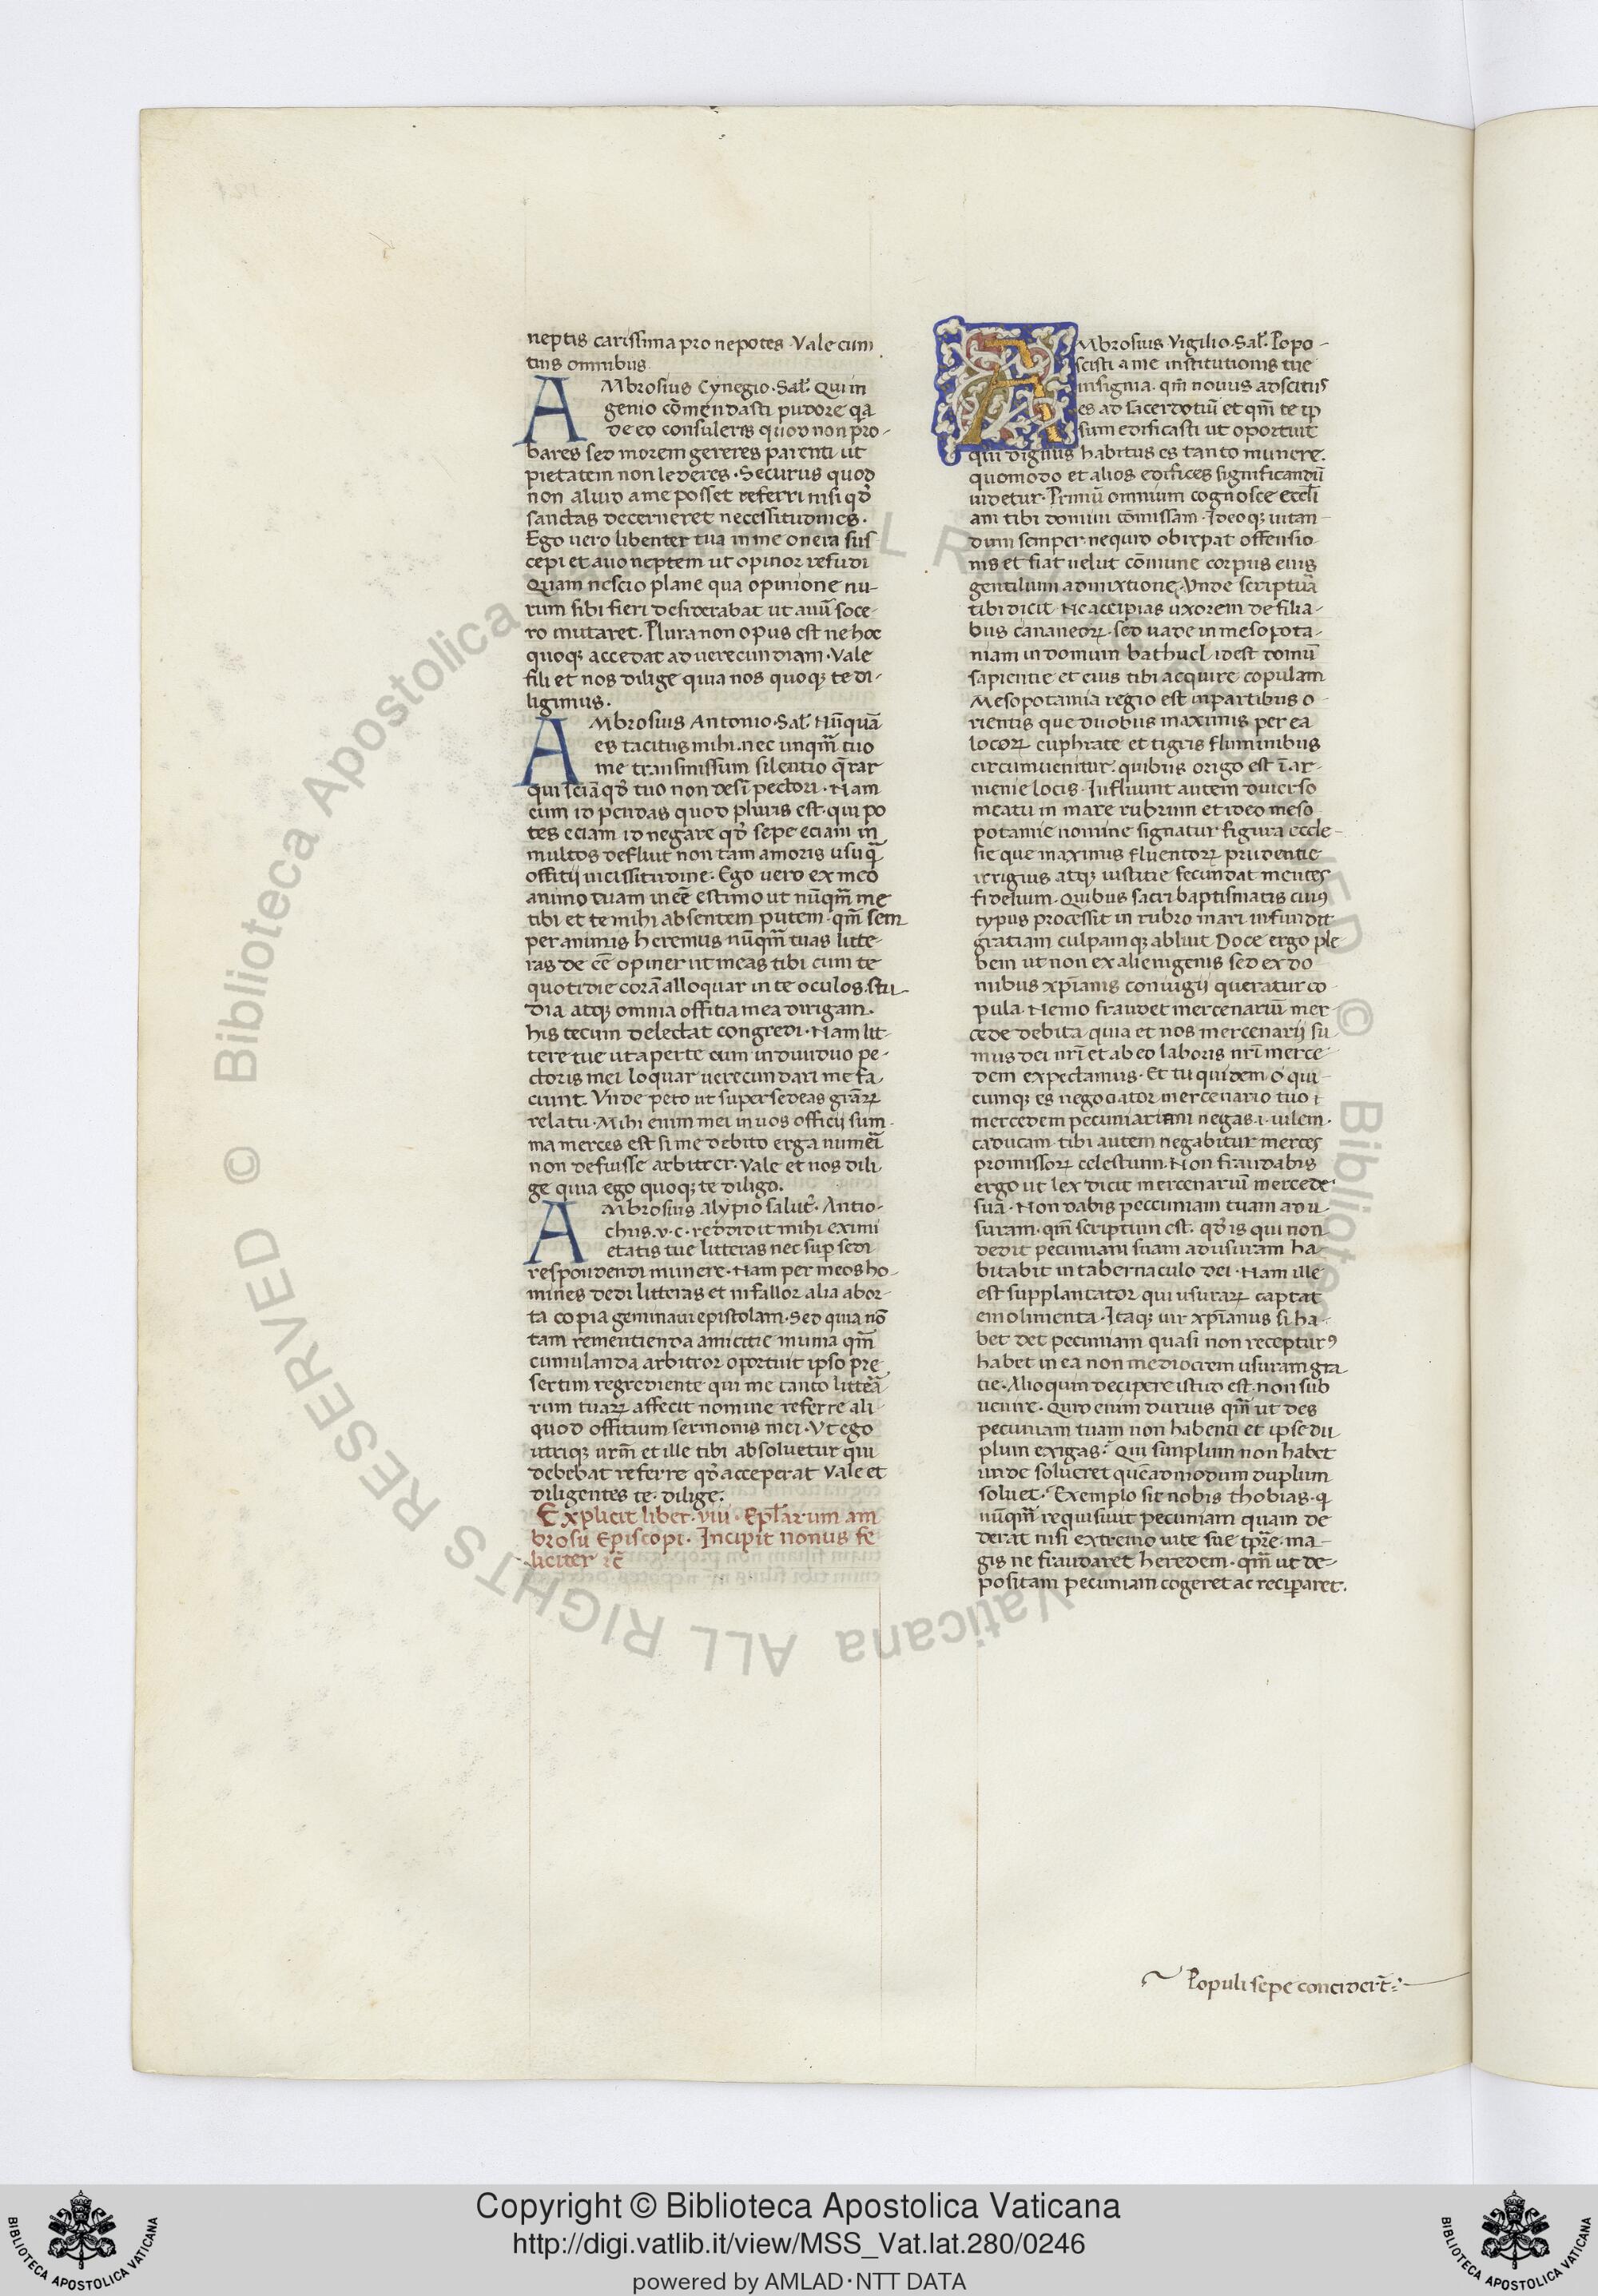 neptis carissima pro nepotes · Vale cum
tuis omnibus
AMbrosius Cynegio · Sal̃. Qui in
genio cōmendasti pudore q̃a
de eo consuleris quod non pro-
bares sed morem gereres parenti ut
pietatem non lederes · Securus quod
non aliud a me posset referri nisi qđ
sanctas decerneret necessitudines ·
Ego uero libenter tua in me onera sus-
cepi et auo neptem ut opinor refudi
Quam nescio plane qua opinione nu-
rum sibi fieri desiderabat ut auū soce-
ro mutaret · Plura non opus est ne hoc
quoq; accedat ad uerecundiam · Vale
fili et nos dilige quia nos quoq; te di-
ligimus ·
AMbrosius Antonio · Sal̃. Nūquā
es tacitus mihi · nec unq̃m tuo
me transmissum silentio q̃rar
qui sciā qđ tuo non desī pectori · Nam
cum id pendas quod pluris est · qui po
tes eciam id negare qđ sepe eciam in
multos defluit non tam amoris usu q̃
offitij uicissitudine · Ego uero ex meo
animo tuam in eē estimo ut nūq̃m me
tibi et te mihi absentem putem · qm̃ sem
per animis heremus nūq̃m tuas litte-
ras deeē opiner ut meas tibi cum te
quotidie corā alloquar in te oculos · stu-
dia atq; omnia offitia mea dirigam ·
his tecum delectat congredi · Nam lit-
tere tue ut aperte cum induiduo pe-
ctoris mei loquar uerecundari me fa-
ciunt · Vnde peto ut supersedeas grãꝝ
relatu · Mihi enim mei in uos officij sum-
ma merces est si me debito erga numeī
non defuisse arbitrer · Vale et nos dili-
ge quia ego quoq; te diligo ·
AMbrosius alypio saluť · Antio-
chus · v · c · reddidit mihi eximi
etatis tue litteras nec sup̱ sedi
respondendi munere · Nam per meos ho-
mines dedi litteras et ni fallor alia abor-
ta copia geminaui epistolam · Sed quia nō
tam rementienda amicitie munia qm̃
cumulanda arbitror oportuit ipso pre
sertim regrediente qui me tanto litterā
rum tuaꝝ affecit nomine referre ali-
quod offitium sermonis mei · Vt ego
utriq; urm̃ et ille tibi absoluetur qui
debebat referre qđ acceperat Vale et
diligentes te · dilige ·
Explicit liber · viii · Epl̃arum am
brosii Episcopi · Incipit nonus fe
liciter ⁊c̃
AMbrosius Vigilio · Sal̃. Popo-
scisti a me institutionis tue
insignia · qm̃ nouus adscitus
es ad sacerdotiū et qm̃ te ip
sum edificasti ut oportuit
qui dignus habitus es tanto munere ·
quomodo et alios edifices significandū
uidetur · Primū omnium cognosce eccl̃i
am tibi domini cōmissam · Ideoq; uitan-
dum semper ne quid obirpat offensio-
nis et fiat uelut cōmune corpus eius
gentilium admixtione · Vnde scriptura
tibi dicit · Ne accipias uxorem de filia-
bus cananeoꝝ · sed uade in mesopota-
niam in domum bathuel · idest domū
sapientie et eius tibi acquire copulam
Mesopotamia regio est in partibus o-
rientis que duobus maximis per ea
locoꝝ euphrate et tigris fluminibus
circumuenitur · quibus origo est ī ar-
menie locis · Influunt autem diuerso
meatu in mare rubrum et ideo meso
potamie nomine signatur figura eccle-
sie que maximus fluentoꝝ prudentie
irriguis atq; iustitie fecundat mentes
fidelium · Quibus sacri baptismatis cuiꝰ
typus processit in rubro mari infundit
gratiam culpamq; abluit · Doce ergo ple
bem ut non ex alienigenis sed ex do
mibus xp̃ianis coniugij queratur co-
pula · Nemo fraudet mercenariū mer
cede debita · quia et nos mercenarij su-
mus dei nr̃i et ab eo laboris nr̃i merce-
dem expectamus · Et tu quidem o qui-
cumq; es negociator mercenario tuo
mercedem pecuniariam negas · i · uilem ·
caducam · tibi autem negabitur merces
promissoꝝ celestium · Non fraudabis
ergo ut lex dicit mercenariū mercede
suā · Non dabis peccuniam tuam ad u-
suram · qm̃ scriptum est · qđ is qui non
dedit pecuniam suam ad usuram ha-
bitabit in tabernaculo dei · Nam ille
est supplantator qui usuraꝝ captat
emolimenta · Itaq; uir xp̃ianus si ha-
bet det pecuniam quasi non recepturꝰ
habet in ea non mediocrem usuram gra
tie · Alioquin decipere istud est · non sub
uenire · Quid enim durius qm̃ ut des
pecuniam tuam non habenti et ipse du-
plum exigas · Qui simplum non habet
unde solueret quēadmodum duplum
soluet · Exemplo sit nobis thobias · q
nūq̃m requisiuit pecuniam quam de
derat nisi extremo uite sue tp̃re · ma-
gis ne fraudaret heredem · qm̃ ut de-
positam pecuniam cogeret ac recip̱aret ·
Populi sepe conciderūt
© Biblioteca Apostolica Vaticana ALL RIGHTS RESERVED © Biblioteca Apostolica Vaticana ALL RIGHTS RESERVED
Copyright © Biblioteca Apostolica Vaticana
http://digi.vatlib.it/view/MSS_Vat.lat.280/0246
powered by AMLAD·NTT DATA
BIBLIOTECA APOSTOLICA VATICANA
BIBLIOTECA APOSTOLICA VATICANA